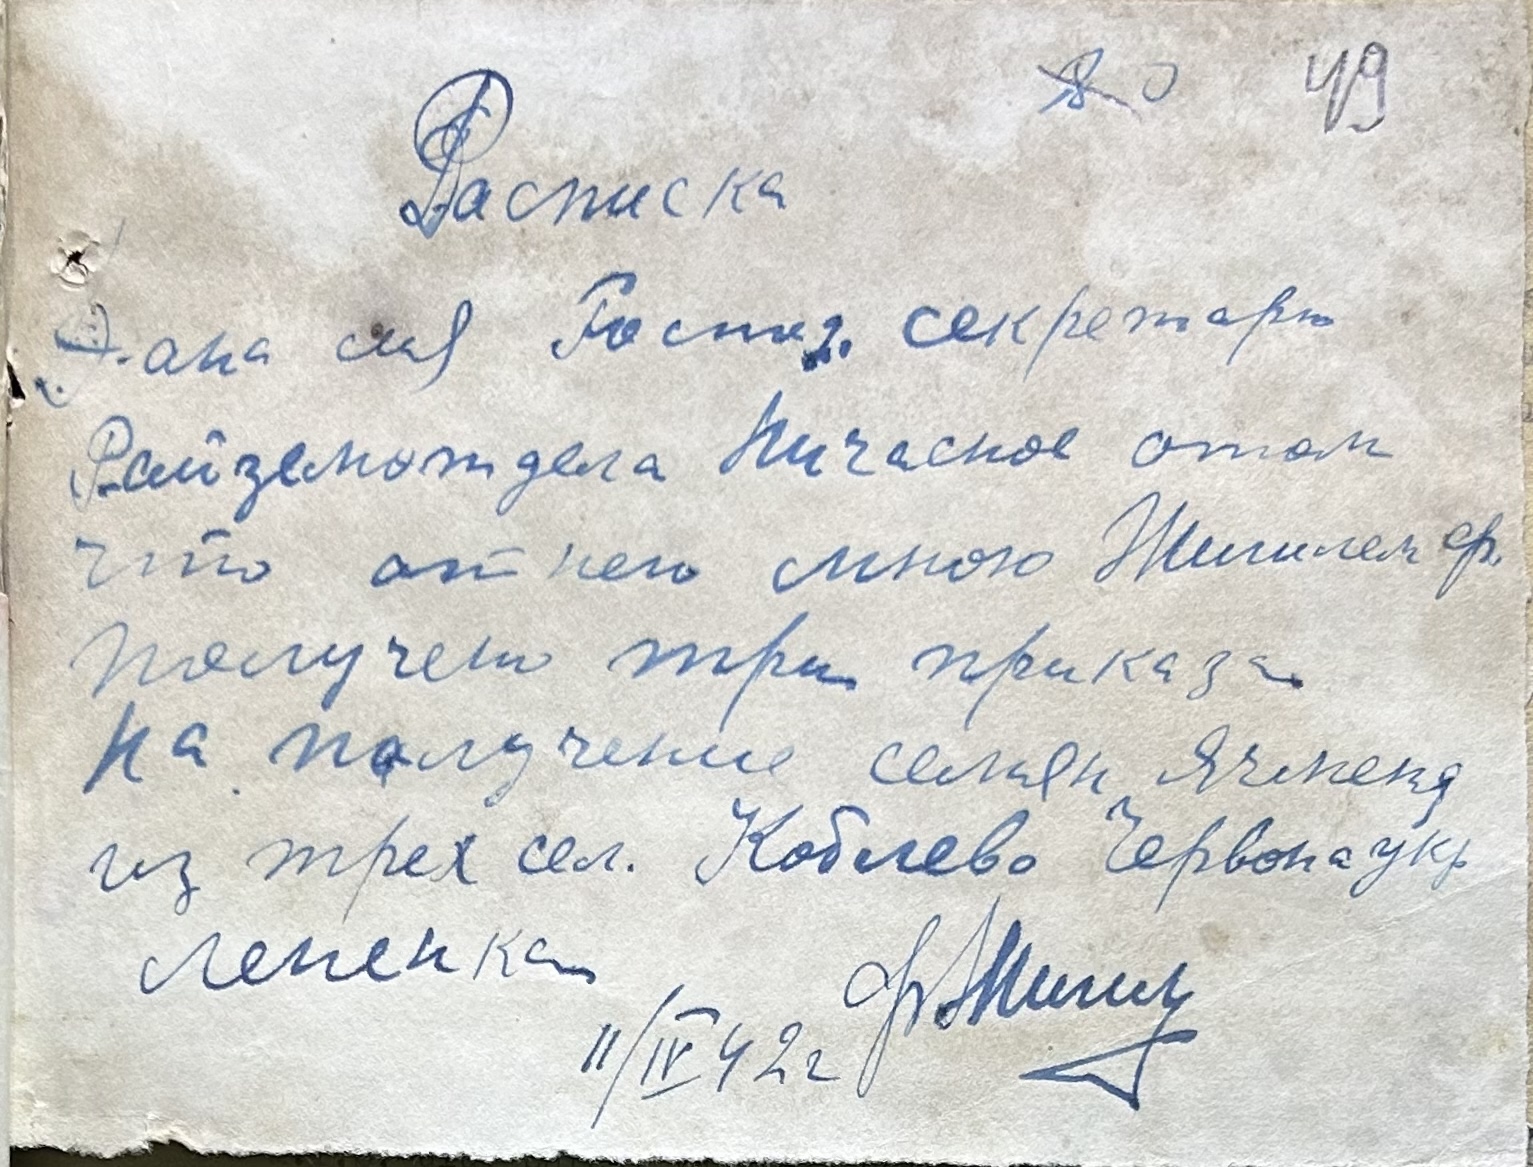 49
Расписка
Дана сия Госпд. секретарю
Райземотдела Ничасное отом
что от него мною Жигилем ф.
получено три приказа
на получение семян Ячменя
из трех сел. Коблево Червона укр
лененка
11/IV 42 г ф. Жигил